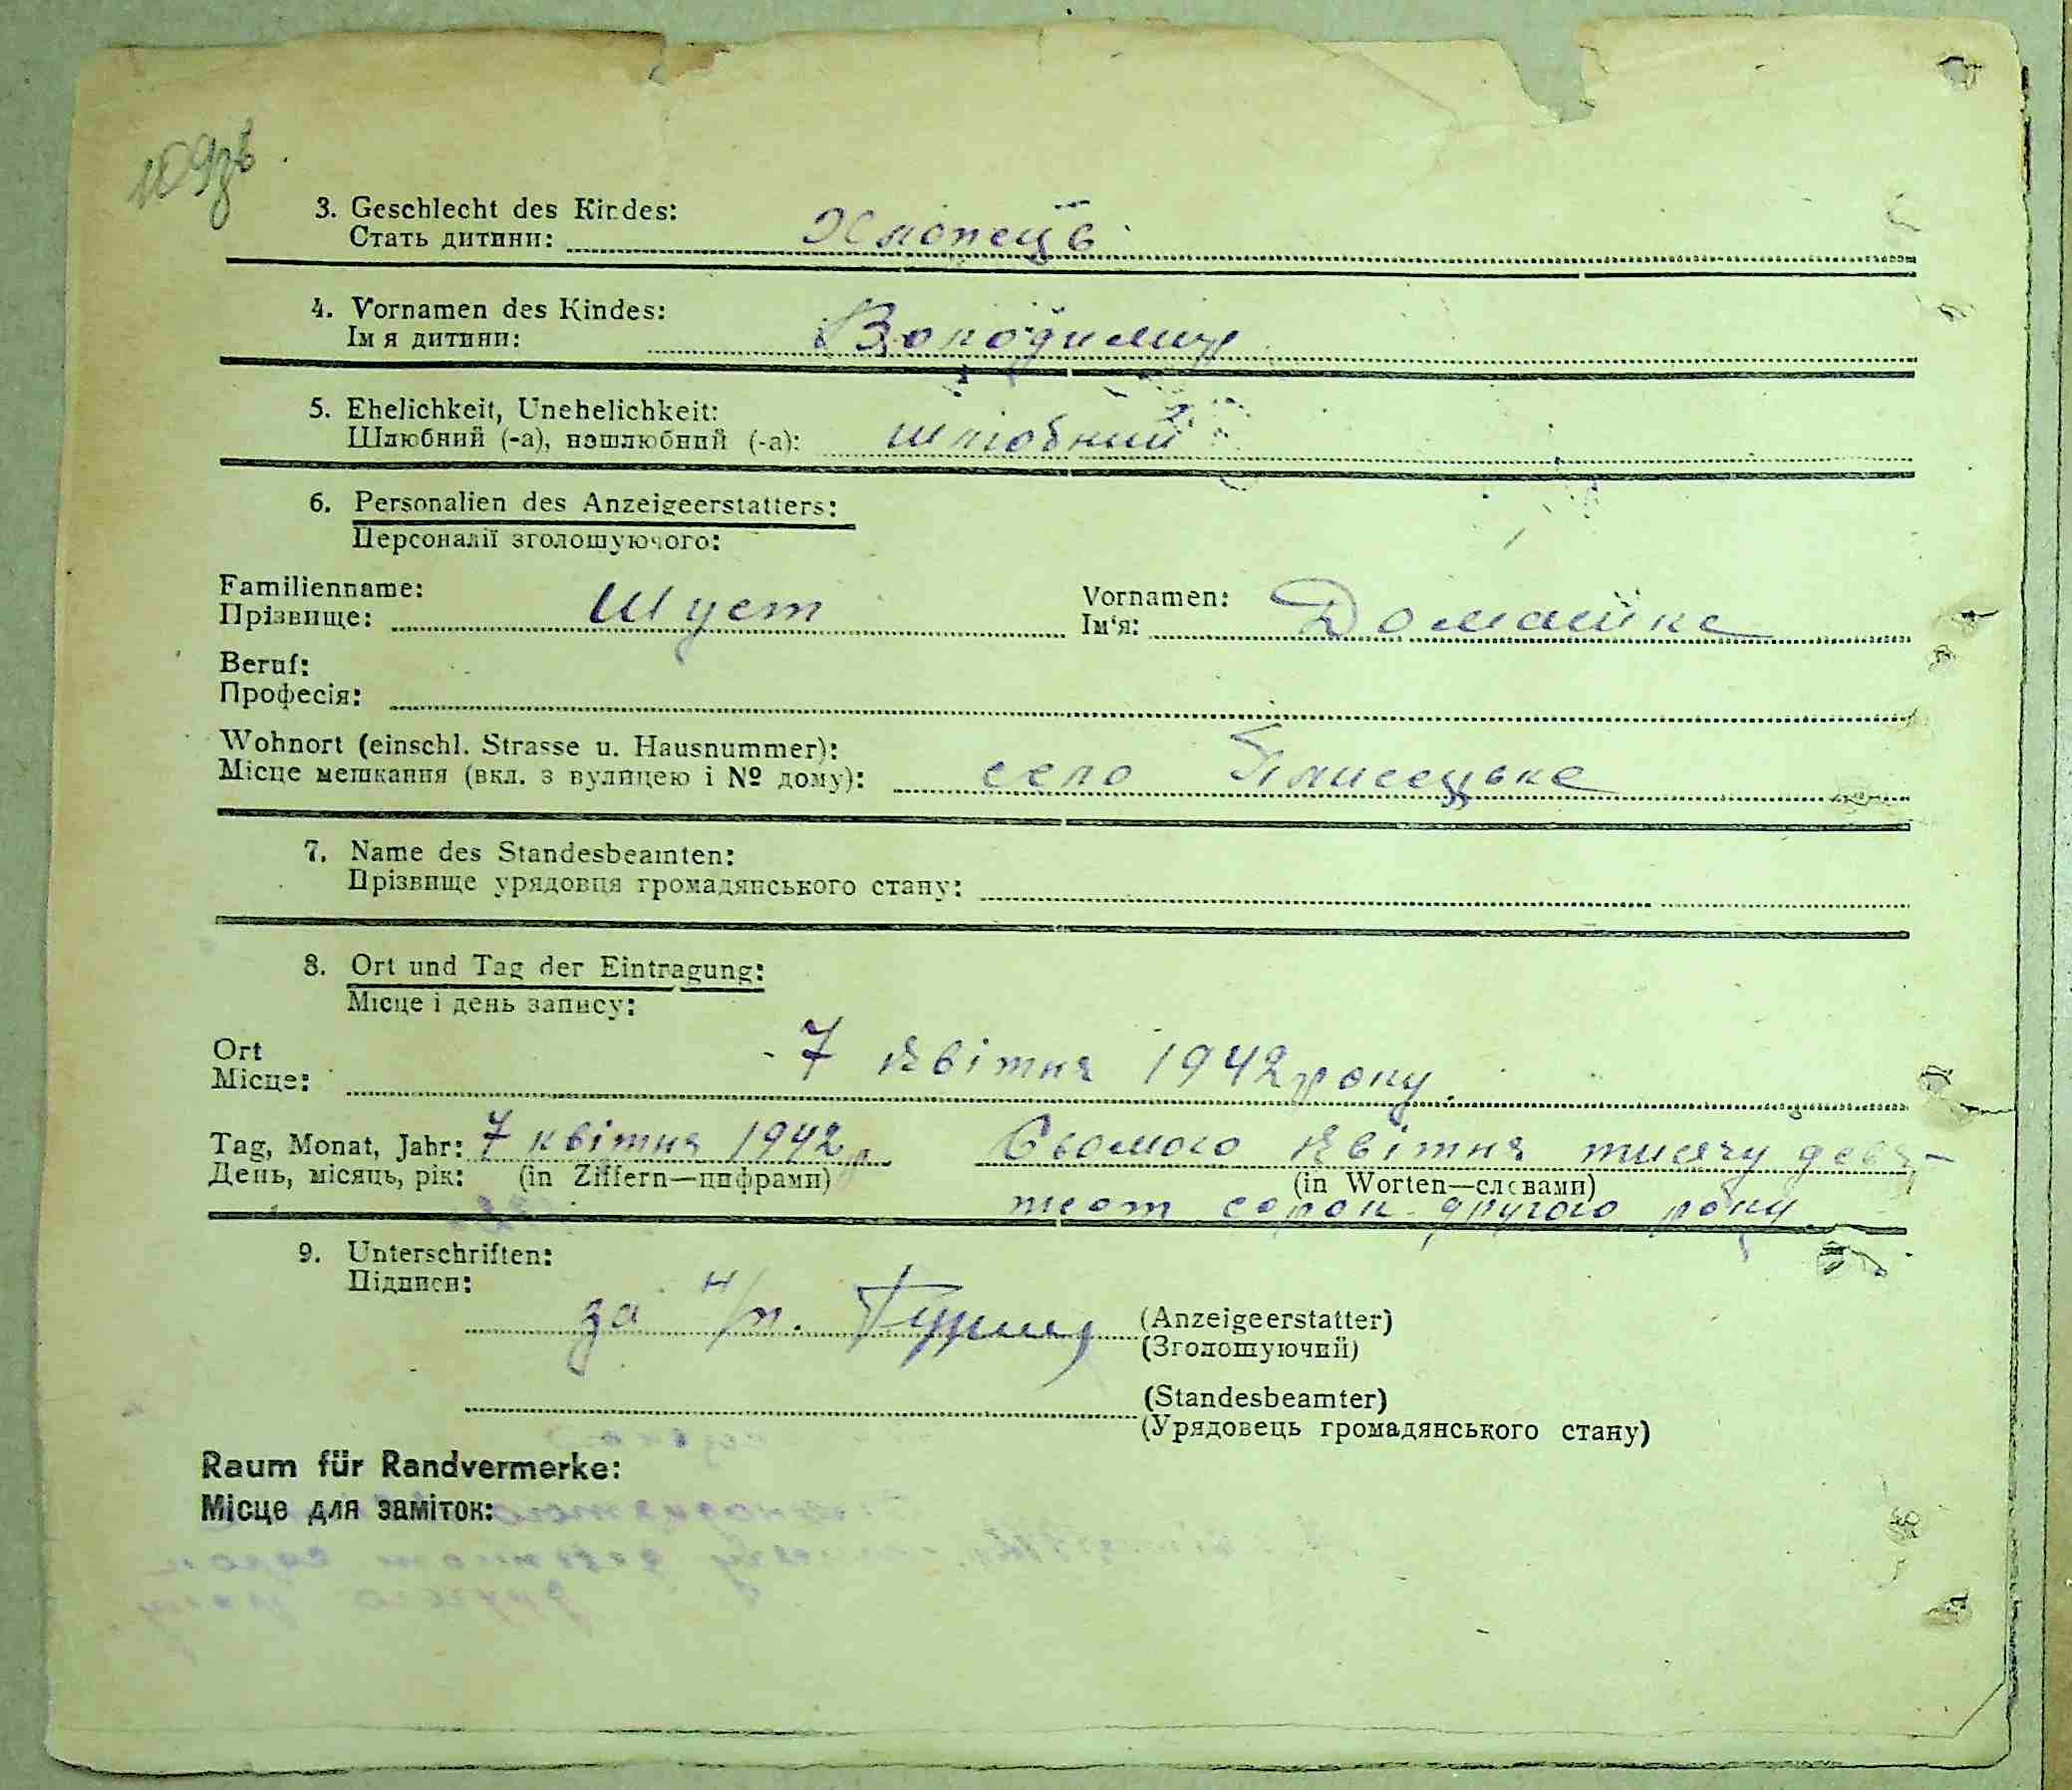 109зв.
3. Geschlecht des Kindes:
Стать дитини: Хлопець
4. Vornamen des Kindes:
Імя дитини: Володимир
5. Ehelichkeit, Unehelichkeit:
Шлюбний (-а), нешлюбний (-а): шлюбний
6. Personalien des Anzeigeerstatters:
Персоналії зголошуючого:
Familienname: Vornamen:
Прізвище: Шуст Ім'я: Домашка
Beruf:
Професія:
Wohnort (einschl. Strasse u. Hausnummer):
Місце мешкання (вкл. з вулицею і № дому): село Плисецьке
7. Name des Standesbeamten:
Прізвище урядовця громадянського стану:
8. Ort und Tag der Eintragung:
Місце і день запису:
Ort
Місце: 7 Квітня 1942 року.
Tag, Monat, Jahr: 7 квітня 1942 р. Сьомого Квітня тисячу девя-
День, місяць, рік: (in Ziffern—цифрами) (in Worten—словами)
тсот сорок другого року
9. Unterschriften:
Підписи:
за н/п. (Anzeigeerstatter)
(Зголошуючий)
(Standesbeamter)
(Урядовець громадянського стану)
Raum für Randvermerke:
Місце для заміток: